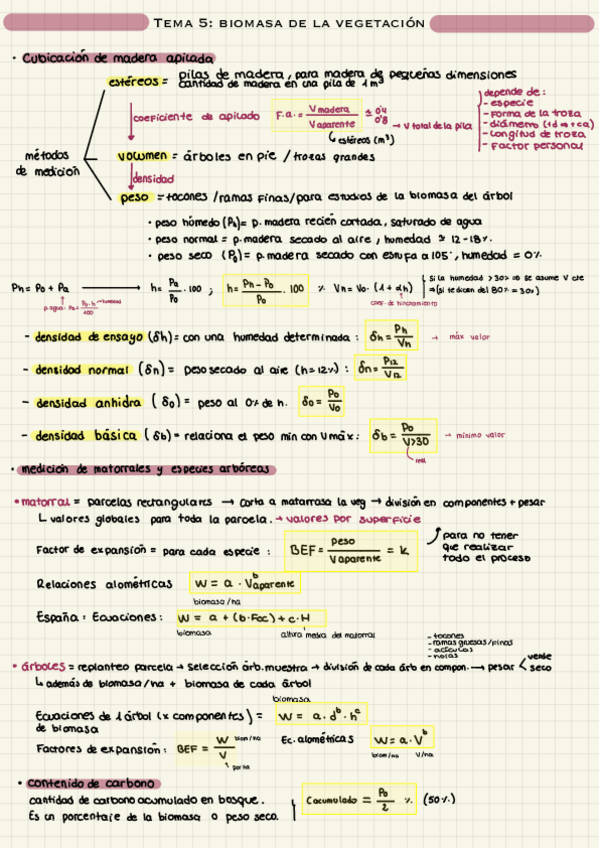 TEMA 5: BIOMASA DE LA VEGETACIÓN
• Cubicación de madera apilada
métodos de medición
estéreos = pilas de madera, para madera de pequeñas dimensiones
cantidad de madera en una pila de 1 m³
coeficiente de apilado F.a. = V madera / V aparente ≤ 0'4 0'8 → V total de la pila
↳ estéreos (m³)
depende de:
- especie
- forma de la troza
- diámetro (↑d → ↑ca)
- longitud de troza
- factor personal
volumen = árboles en pie / trozas grandes
densidad
peso = tocones / ramas finas / para estudios de la biomasa del árbol
• peso húmedo (Ph) = p. madera recién cortada, saturado de agua
• peso normal = p. madera secado al aire, humedad ≈ 12-18%
• peso seco (P0) = p. madera secado con estufa a 105°, humedad = 0%
Ph = P0 + Pa → h = Pa / P0 · 100 ; h = Ph - P0 / P0 · 100 % Vh = V0 · (1 + αh)
p. agua: Pa = P0 · h / 100 → humedad
coef. de hinchamiento
si la humedad > 30% ⇒ se asume V cte
⇒ (si te dicen del 80% = 30%)
- densidad de ensayo (δh) = con una humedad determinada : δh = Ph / Vh → máx valor
- densidad normal (δn) = peso secado al aire (h = 12%) : δn = P12 / V12
- densidad anhidra (δ0) = peso al 0% de h. δ0 = P0 / V0
- densidad básica (δb) = relaciona el peso min con V máx : δb = P0 / V>30 → mínimo valor
real
• medición de matorrales y especies arbóreas
• matorral = parcelas rectangulares → corta a matarrasa la veg → división en componentes + pesar
↳ valores globales para toda la parcela. → valores por superficie
Factor de expansión = para cada especie : BEF = peso / V aparente = k
para no tener
que realizar
todo el proceso
Relaciones alométricas W = a · V aparente^b
biomasa/ha
España : Ecuaciones : W = a + (b · Fcc) + c · H
biomasa altura media del matorral
- tocones
- ramas gruesas/finas
- acículas
- hojas
• árboles = replanteo parcela → selección árb. muestra → división de cada árb en compon. → pesar < verde seco
↳ además de biomasa/ha + biomasa de cada árbol
biomasa
Ecuaciones de 1 árbol (x componentes) = W = a · d^b · h^c
de biomasa
Factores de expansión : BEF = W / V biom/ha por ha
Ec. alométricas W = a · V^b
biom/ha V/ha
• contenido de carbono
cantidad de carbono acumulado en bosque.
Es un porcentaje de la biomasa o peso seco.
C acumulado = P0 / 2 % (50%)